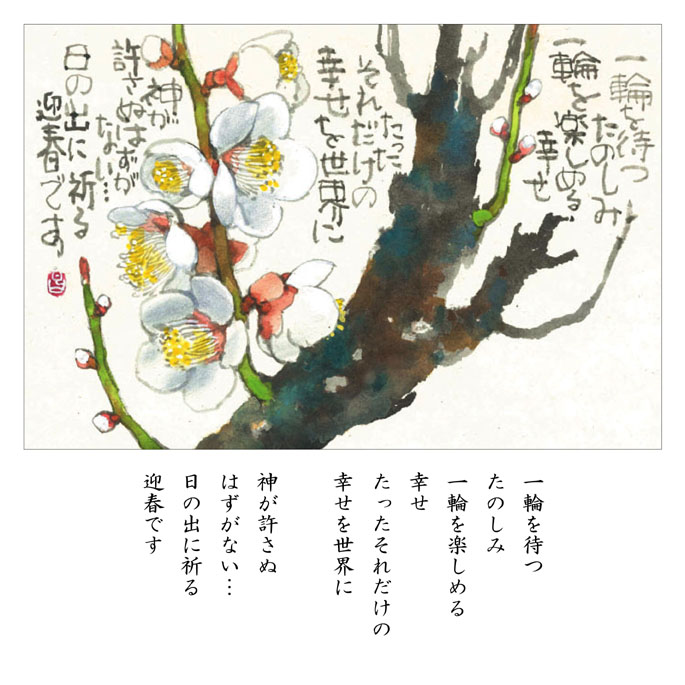 一輪を待つ
たのしみ
一輪を楽しめる
幸せ
たった
それだけの
幸せを世界に
神が
許さぬはずが
ない…
日の出に祈る
迎春です
一輪を待つ
たのしみ
一輪を楽しめる
幸せ
たったそれだけの
幸せを世界に
神が許さぬ
はずがない…
日の出に祈る
迎春です